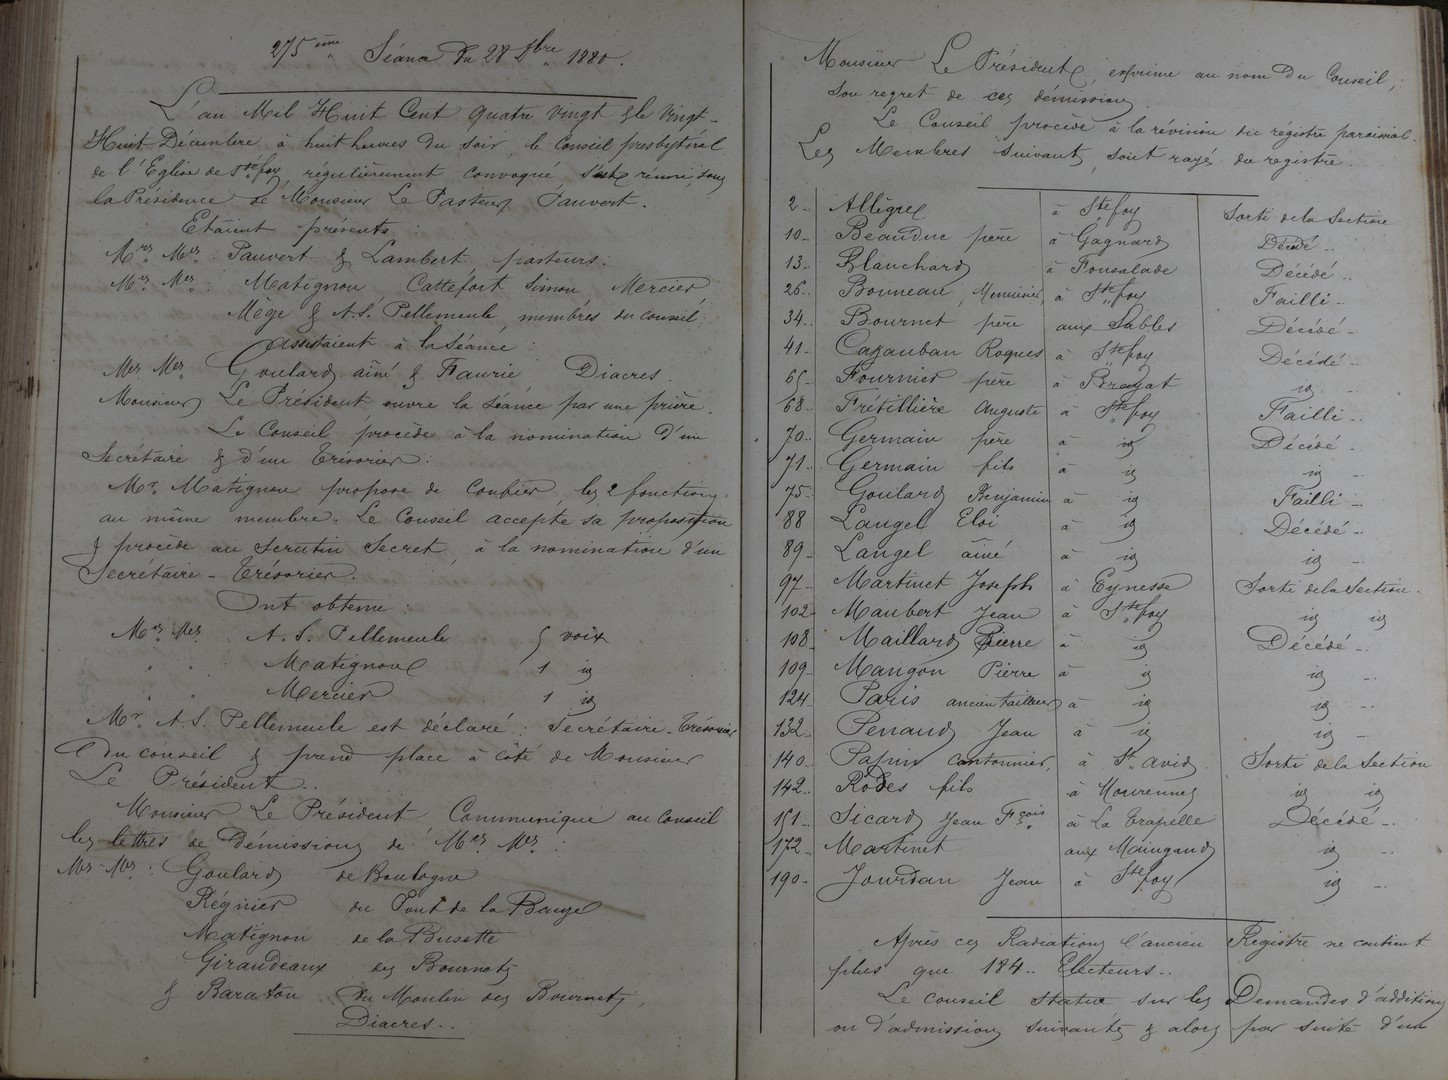 275ème Séance du 28 Xbre 1880.
L'an Mil Huit Cent quatre vingt & le Vingt-
Huit Décembre à huit heures du soir, le Conseil presbytéral
de l'Eglise de Ste foy, régulièrement convoqué, s'est réuni, sous
la Présidence de Monsieur Le Pasteur Pauvert.
Etaient présents :
Mrs Mrs : Pauvert & Lambert pasteurs.
Mrs Mrs : Matignon Cattéfort Simon Mercier,
Mège & A.S. Pellemeule, membres du conseil.
Assistaient à la Séance :
Mrs Mrs Goulard aîné & Faurie Diacres.
Monsieur Le Président ouvre la séance par une prière.
Le Conseil procède à la nomination d'un
Secrétaire & d'un Trésorier.
Mr. Matignon propose de confier les 2 fonctions
au même membre. Le Conseil accepte sa proposition
& procède au scrutin secret, à la nomination d'un
Secrétaire-Trésorier.
Ont obtenu :
Mrs Mrs A. S. Pellemeule 5 voix
Matignon 1 id
Mercier 1 id
Mr. A S. Pellemeule est déclaré : Secrétaire-Trésorier
du conseil & prend place à côté de Monsieur
Le Président..
Monsieur Le Président Communique au Conseil
les lettres de Démissions de Mrs Mrs :
Mrs Mrs : Goulard de Boulogne
Régnier du Pont de la Bauze
Matignon de la Busette
Giraudeaux des Bournets
& Baraton du Moulin des Bournets,
Diacres..
Monsieur Le Président, exprime au nom du Conseil,
son regret de ces démissions.
Le Conseil procède à la révision du régistre paroissial.
Les Membres suivants, sont rayés du registre.
2 Allègre à Ste foy Sorti de la Section
10 Beauduc père à Gagnard Décédé
13 Blanchard à Fonsalade Décédé
26 Bonneau, Menuisier, à Ste foy Failli
34 Bournet père aux Sables Décédé
41 Cazauban Roques à Ste foy Décédé
65 Fournier père à Pérayat id
68 Frétillière Auguste à Ste foy Failli
70 Germain père à id Décédé
71 Germain fils à id id
75 Goulard Benjamin à id Failli
88 Langel Eloi à id Décédé
89 Langel aîné à id id
97 Martinet Joseph à Eynesse Sorti de la Section
102 Maubert Jean à Ste foy id id
108 Maillard Pierre à id Décédé
109 Mangon Pierre à id id
124 Paris ancien tailleur à id id
132 Penaud Jean à id id
140 Papin cantonnier, à St. Avid Sorti de la Section
142 Rodes fils à Mourennes id id
151 Sicard Jean Fçois à La Trapélle Décédé
172 Martinet aux Maingauds id
190 Jourdan Jean à Ste foy id
Après ces Radiations l'ancien Registre ne contient
plus que 184.. Electeurs..
Le conseil statue sur les Demandes d'additions
ou d'admissions suivantes & alors par suite d'un